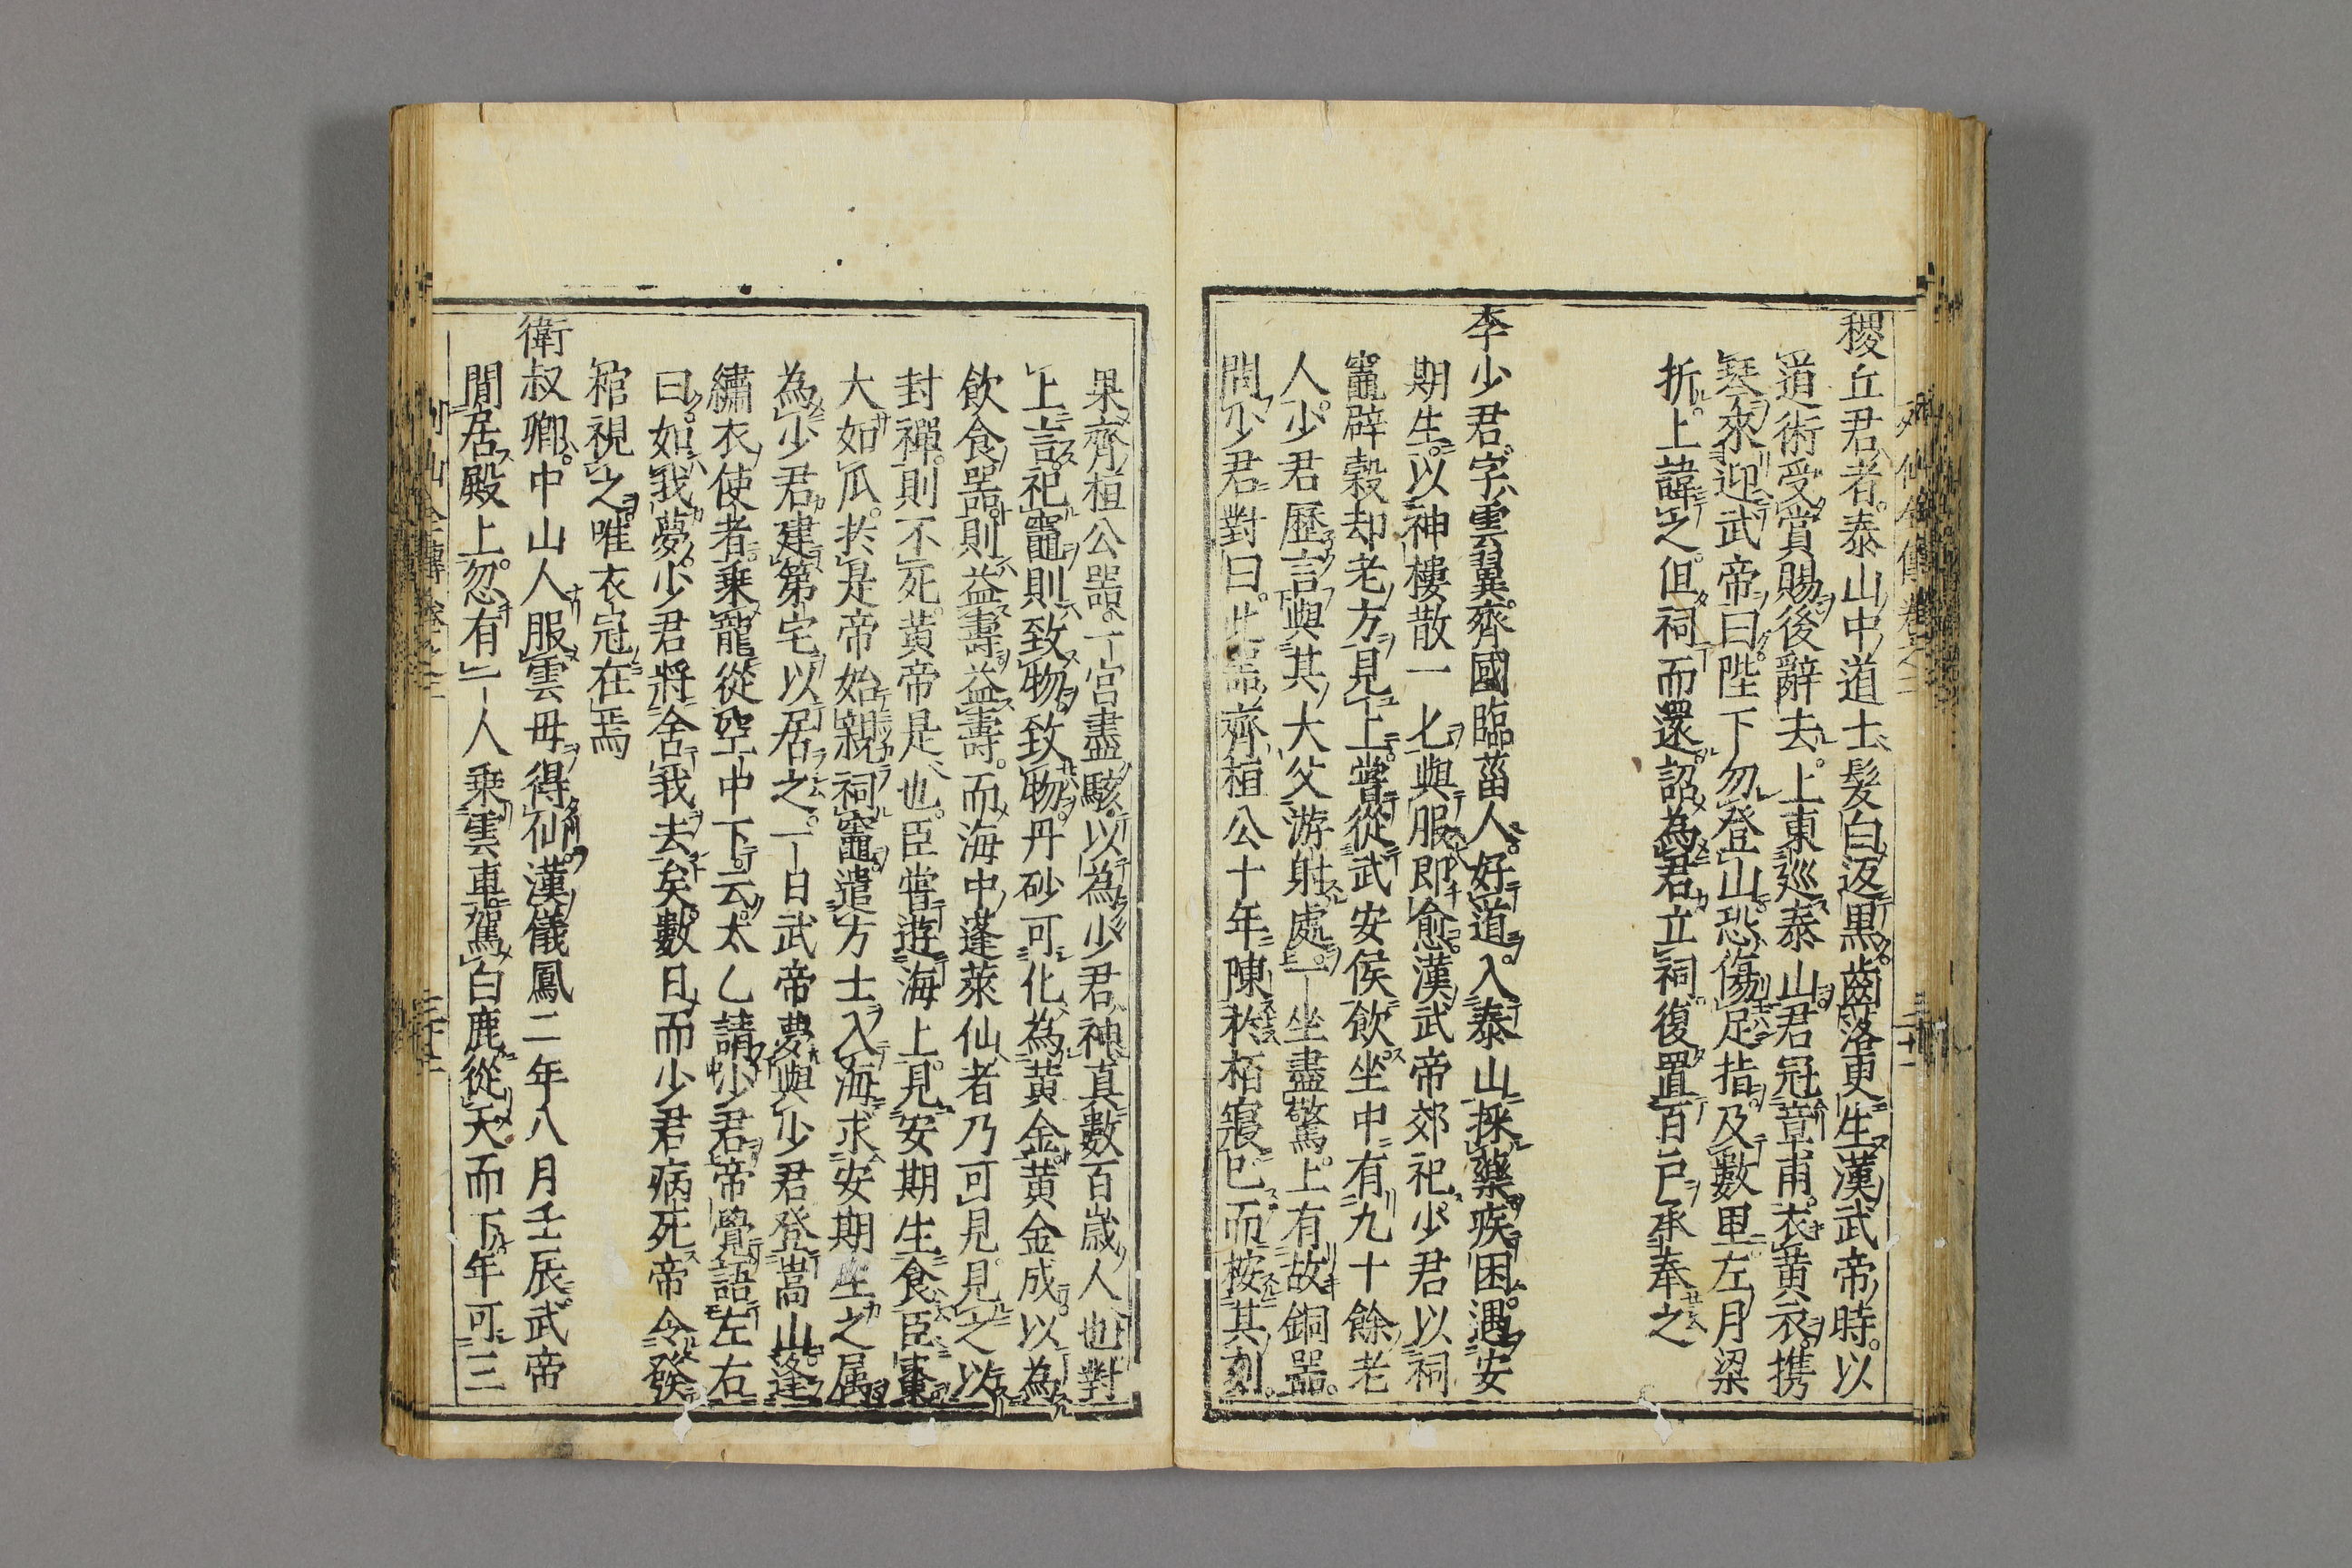 稷丘君者。泰山中道士髮白返黒。齒落更生漢武帝時。以
道術受賞賜後辭去。上東巡泰山。君冠章甫。衣黄衣。携
琴來迎武帝曰。陛下勿登山。恐傷足指。及數里左足指果
折。上諱之。但祠而還。詔為君立祠復置百戸承奉之
李少君。字雲翼。齊國臨菑人。好道。入泰山採藥疾困。遇安
期生。以神樓散一匕與服即愈。漢武帝郊祀。少君以祠
竈辟穀却老方見上。嘗從武安侯飲坐中有九十餘老
人。少君歷言與其大父游射處。一坐盡驚。上有故銅器。
問少君對曰。此器齊桓公十年陳於栢寢已而按其刻。
果齊桓公器。一宮盡駭。以為少君神真數百歳人也對
上言祀竈則致物。致物。丹砂可化為黄金。黄金成以為
飲食器。則益壽。益壽。而海中蓬萊仙者乃可見。見之以
封禪。則不死。黄帝是也。臣嘗遊海上。見安期生食臣棗
大如瓜。於是帝始親祠竈。遣方士入海求安期生之属
為少君建第宅以居之。一日武帝夢與少君登嵩山。逢
繡衣使者。乗龍從空中下。云太乙請少君。帝覺語左右
曰。如我夢。少君將舍我去矣。數日而少君病死帝令發
棺視之。唯衣冠在焉
衛叔卿。中山人服雲母得仙。漢儀鳳二年八月壬辰。武帝
閒居殿上。忽有一人乗雲車。駕白鹿從天而下。年可三